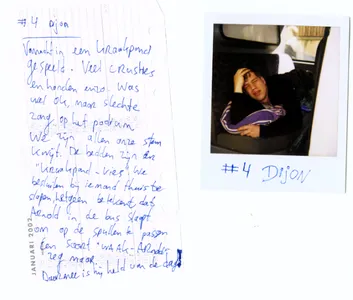 #4 Dijon
Vannacht in een kraakpand
gespeeld. Veel crusties
en honden enzo. Was
wel ok, maar slechte
zang op het podium.
We zijn allen onze stem
kwijt. De bedden zijn
"kraakpand-vies". We
besluiten bij iemand thuis te
slapen, hetgeen betekent dat
Arnold in de bus slaapt
om op de spullen te passen
Een soort "waak-Arnold"
zeg maar.
Daarmee is hij held van de dag
JANUARI 2002
#4 DIJON